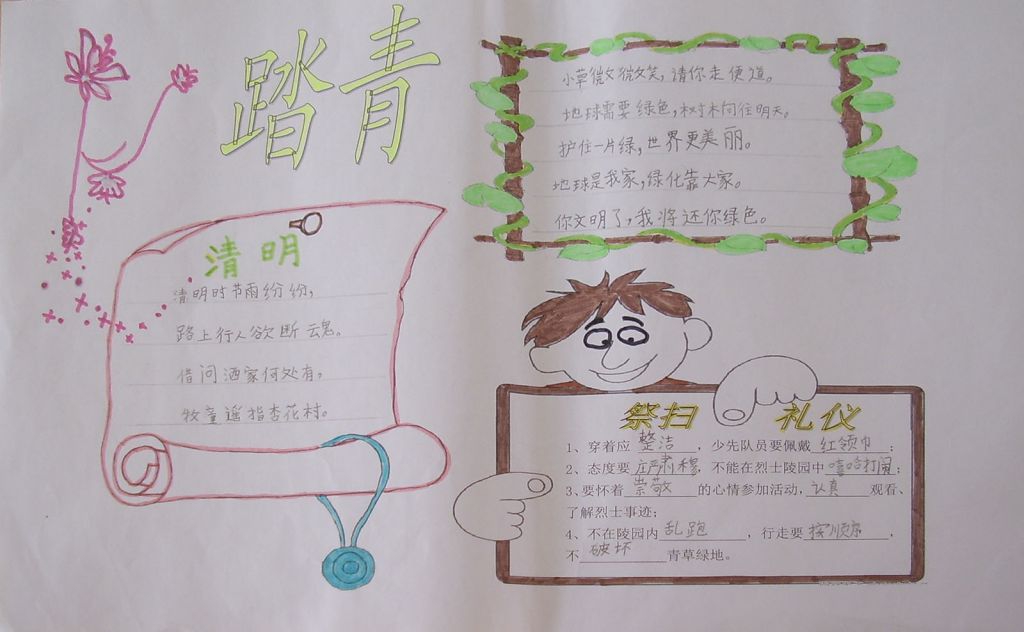 踏青
小草微微笑,请你走便道。
地球需要绿色,树木向往明天。
护住一片绿,世界更美丽。
地球是我家,绿化靠大家。
你文明了,我将还你绿色。
清明
清明时节雨纷纷,
路上行人欲断魂。
借问酒家何处有,
牧童遥指杏花村。
祭扫 礼仪
1、穿着应整洁,少先队员要佩戴红领巾;
2、态度要庄严肃穆,不能在烈士陵园中嘻哈打闹;
3、要怀着崇敬的心情参加活动,认真观看、
了解烈士事迹;
4、不在陵园内乱跑,行走要按顺序,
不破坏青草绿地。